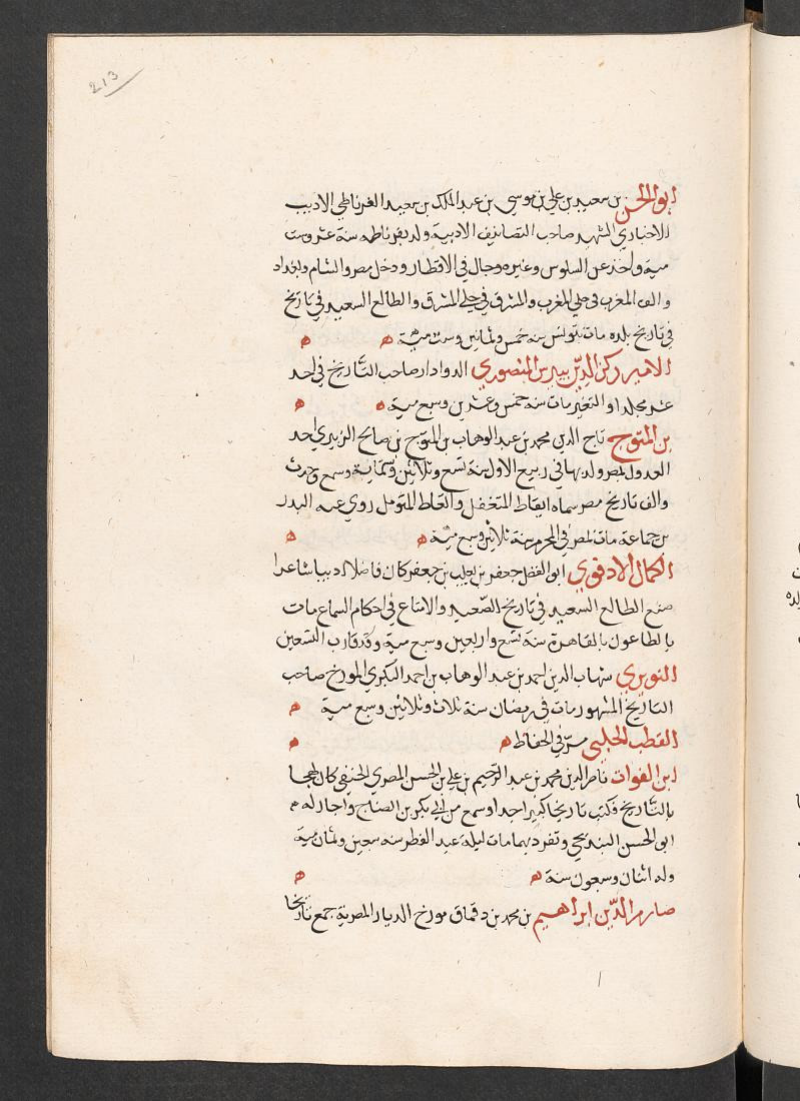 213
ابو الحسن بن سعيد بن علي بن موسي بن عبد الملك بن سعيد الغرناطي الاديب
الاخباري الشهير صاحب التصانيف الادبية ولد بغرناطه سنة عشر وست
مية واخذ عن السلوس وغيره وجال في الاقطار ودخل مصر والشام وبغداد
والف المغرب في حلي المغرب والمشرق في حلي المشرق والطالع السعيد في تاريخ
في تاريخ بلده مات بتونس سنه خمس وثمانين وست مية ه ه
الامير ركن الدين بيبرس المنصوري الدوادار صاحب التاريخ في احد
عشر مجلدا و التفير مات سنه خمس وعشرين وسبع مية ه ه
بن المتوج تاج الدين محمد بن عبد الوهاب بن المتوج بن صالح الزبيري احد
العدول بمصر ولد بها في ربيع الاول سنة تسع وثلاثين وثماية وسمع وحدث
والف تاريخ مصر سماه ايقاظ المتغفل واتعاظ المتومل روي عنه البدر
بن جماعة مات بمصر في المحرم سنة ثلاثين وسبع مية ه ه
الكمال الادفوي ابو الفضل جعفر بن تغلب بن جعفر كان فاضلا اديبا شاعرا
صنع الطالع السعيد في تاريخ الصعيد والامتاع في احكام السماع مات
بالطاعون بالقاهرة سنة تسع واربعين وسبع مية وقد قارب التسعين
النويري شهاب الدين احمد بن عبد الوهاب بن احمد البكري المورخ صاحب
التاريخ المشهور مات في رمضان سنة ثلاث وثلاثين وسبع مية ه
القطب الحلبي مر في الحفاظ ه ه
ابن الفوات ناصر الدين محمد بن عبد الرحيم بن علي بن الحسن المصري الحنفي كان لهجا
بالتاريخ فكتب تاريخا كبيرا جدا وسمع من ابي بكر بن الصناج واجاز له ه
ابو الحسن البندنيجي وتفرد بهما مات ليلة عيد الفطر سنه سبعين وثمان مية
وله اثنان وسبعون سنة ه ه
صارم الدين ابراهيم بن محمد بن دقماق مورخ الديار المصرية جمع تاريخا